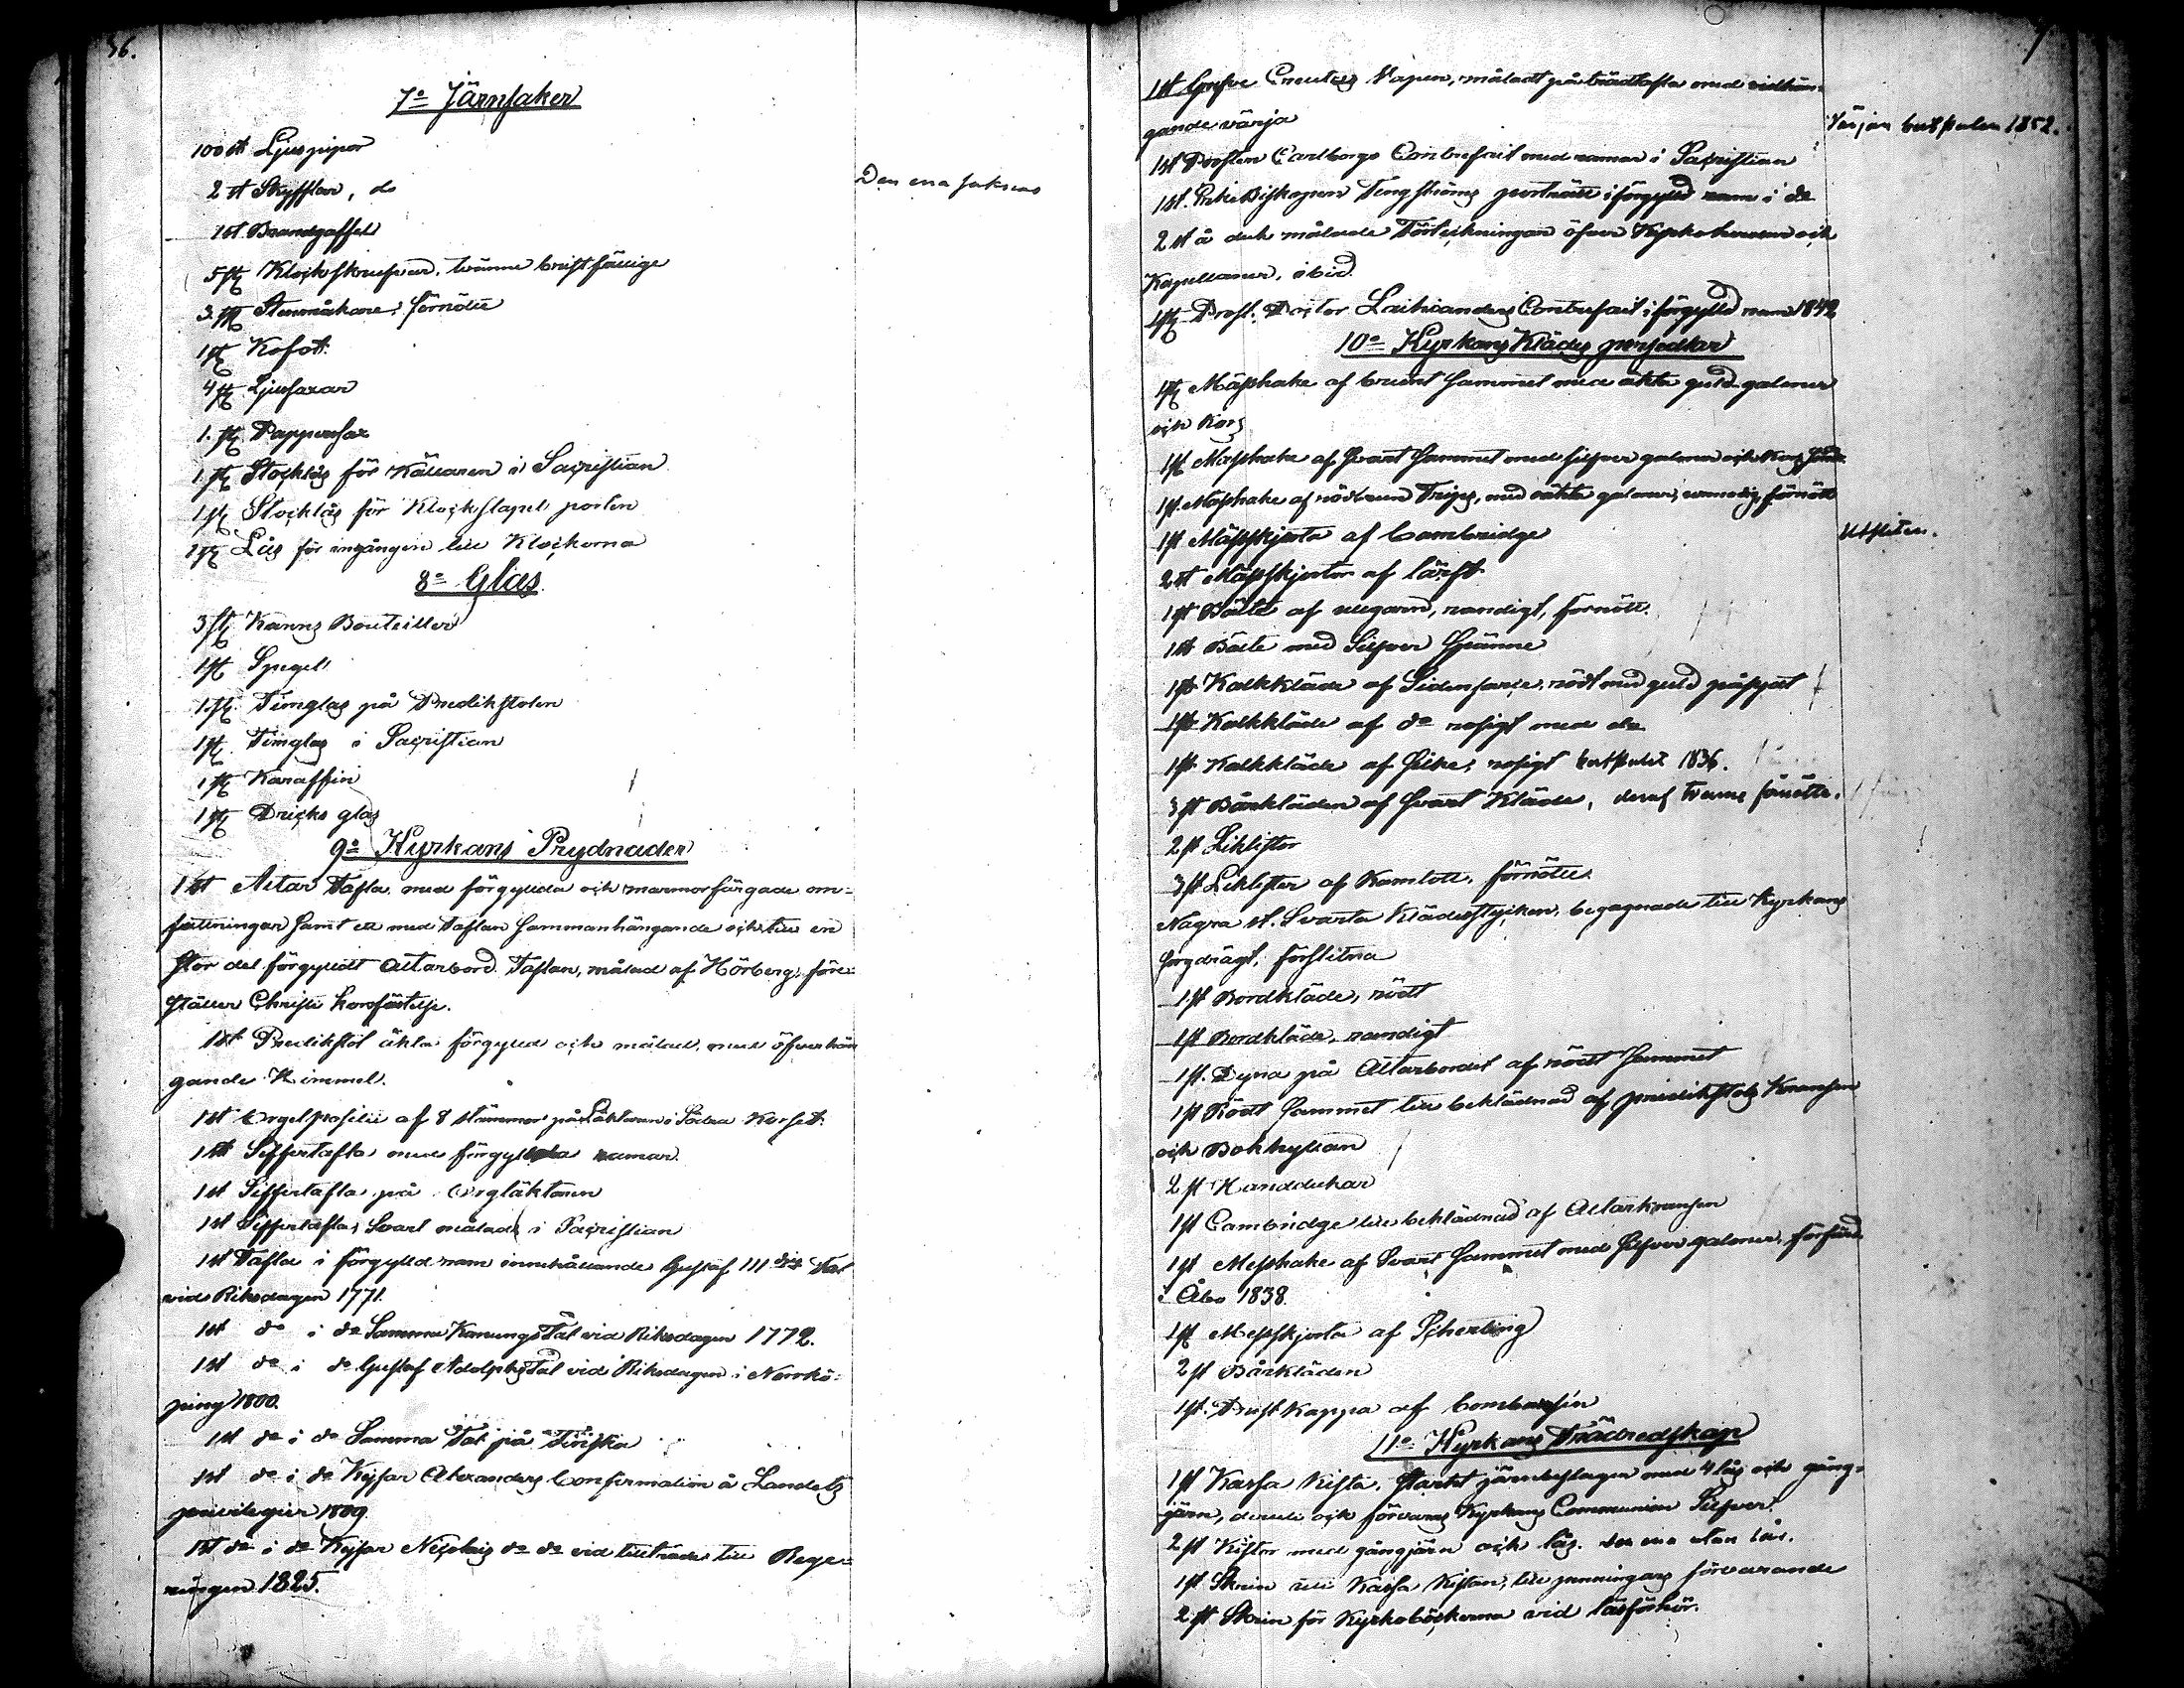 36.
7o Järnsaker
100 st Ljuspipor
2 st Skyfflar, do
Den ena saknas
1 st Brandgaffel
5 st Klockskrufvar, tvänne bristfällige
3 st Stenmåkare, förnötte
1 st Kofot
4 st Ljussaxar
1. st Papperssax
1. st Stocklås för Källaren i Sacristian
1 st Stocklås för Klockstapel porten
1 st Lås för ingången till Klockorna
8o Glas
3 st Kanns Bouteiller
1 st Spegel
1 st Timglas på Predikstolen
1 st Timglas i Sacristian
1 st Karaffin
1 st Dricks glas
9o Kyrkans Prydnader
1 st Altar Tafla med förgyllda och marmorfärgade om-
fattningar samt ett med Taflan sammanhängande och till en
stor del förgylldt Altarbord. Taflan, målad af Hörberg, före-
ställer Christi korsfästelse.
1 st Predikstol äkta förgylld och målad, med öfverhän
gande Himmel.
1 st Orgelpositiv af 8 stämmor på Läktaren i Södra Korset.
1 st Siffertafla med förgyllda ramar.
1 st Siffertafla på Orgläktaren
1 st Siffertafla, Svart målad i Sacristian
1 st Tafla i förgylld ram innehållande Gustaf III djes Tal
vid Riksdagen 1771.
1 st do i do Samma Konungs Tal vid Riksdagen 1772.
1 st do i do Gustaf Adolphs Tal vid Riksdagen i Norrkö-
ping 1800.
1 st do i do Samma Tal på Finska
1 st do i do Kejsar Alexanders Confirmation å Landets
privilegier 1809
1 st do i do Kejsar Nicolais do do vid tillträde till Rege-
ringen 1825.
1 st Grefve Creutzs Vapen, måladt på trädtafla med vidhän-
gande värja
Värjan bortstulen 1852.
1 st Prosten Carlborgs Contrefait med ramar i Sacristian
1 st. Erke Biskopen Tengströms porträtt i förgylld ram i do
2 st å duk målade Förteckningar öfver Kyrkoherdar och
Kapellaner, ibid.
1 st Prost. Doctor Laihianders Contrefait i förgylld ram 1842
10o Kyrkans Klädes persedlar
1 st Mässhake af brunt Sammet med äkta guld galoner
och Kors
1 st Mässhake af Svart Sammet med silfver galoner och Kors
1 st. Mässhake af rödbrun Trips, med oäkta galoner, förnött
1 st Mässkjorta af Cambridge
Utsliten.
2 st Mässkjortor af lärft
1 st Bälte af ullgarn, randigt, förnött.
1 st Bälte med Silfver Spänne
1 st Kalkkläde af Siden, rödt med guld påsydt
1 st Kalkkläde af do rosigt med do
1 st Kalkkläde af Silke, rosigt bortstulet 1836.
3 st Bårkläden af Svart Kläde, deraf trenne förnötte.
2 st Liklister
3 st Liklister af Kamlott, förnötte.
Några st. Svarta Klädesstycken, begagnade till Kyrkans
sorgdrägt, förslitna
1 st Bordkläde, rödt
1 st Bordkläde, randigt
1 st. Dyna på Altarbordet af rödt Sammet
1 st Rödt Sammet till beklädnad af predikstols Kransen
och Bokhyllan
2 st Handdukar
1 st Cambridge till beklädnad af Altarkransen
1 st Messhake af Svart Sammet med Silfver galoner, förfärd.
i Åbo 1838.
1 st Messkjorta af Scherting
2 st Bårkläden
1 st. Prestkappa af Bombasin
11o Kyrkans Trädredskap
1 st Kassa Kista, starkt järnbeslagen med 4 lås och gång-
järn, deruti och förvaras Kyrkans Communion Silfver
2 st Kistor med gångjärn och lås. den ena utan lås.
1 st Skrin uti Kassa Kistan, till penningars förvarande
2 st Skrin för Kyrkoböckerna vid läsförhör.